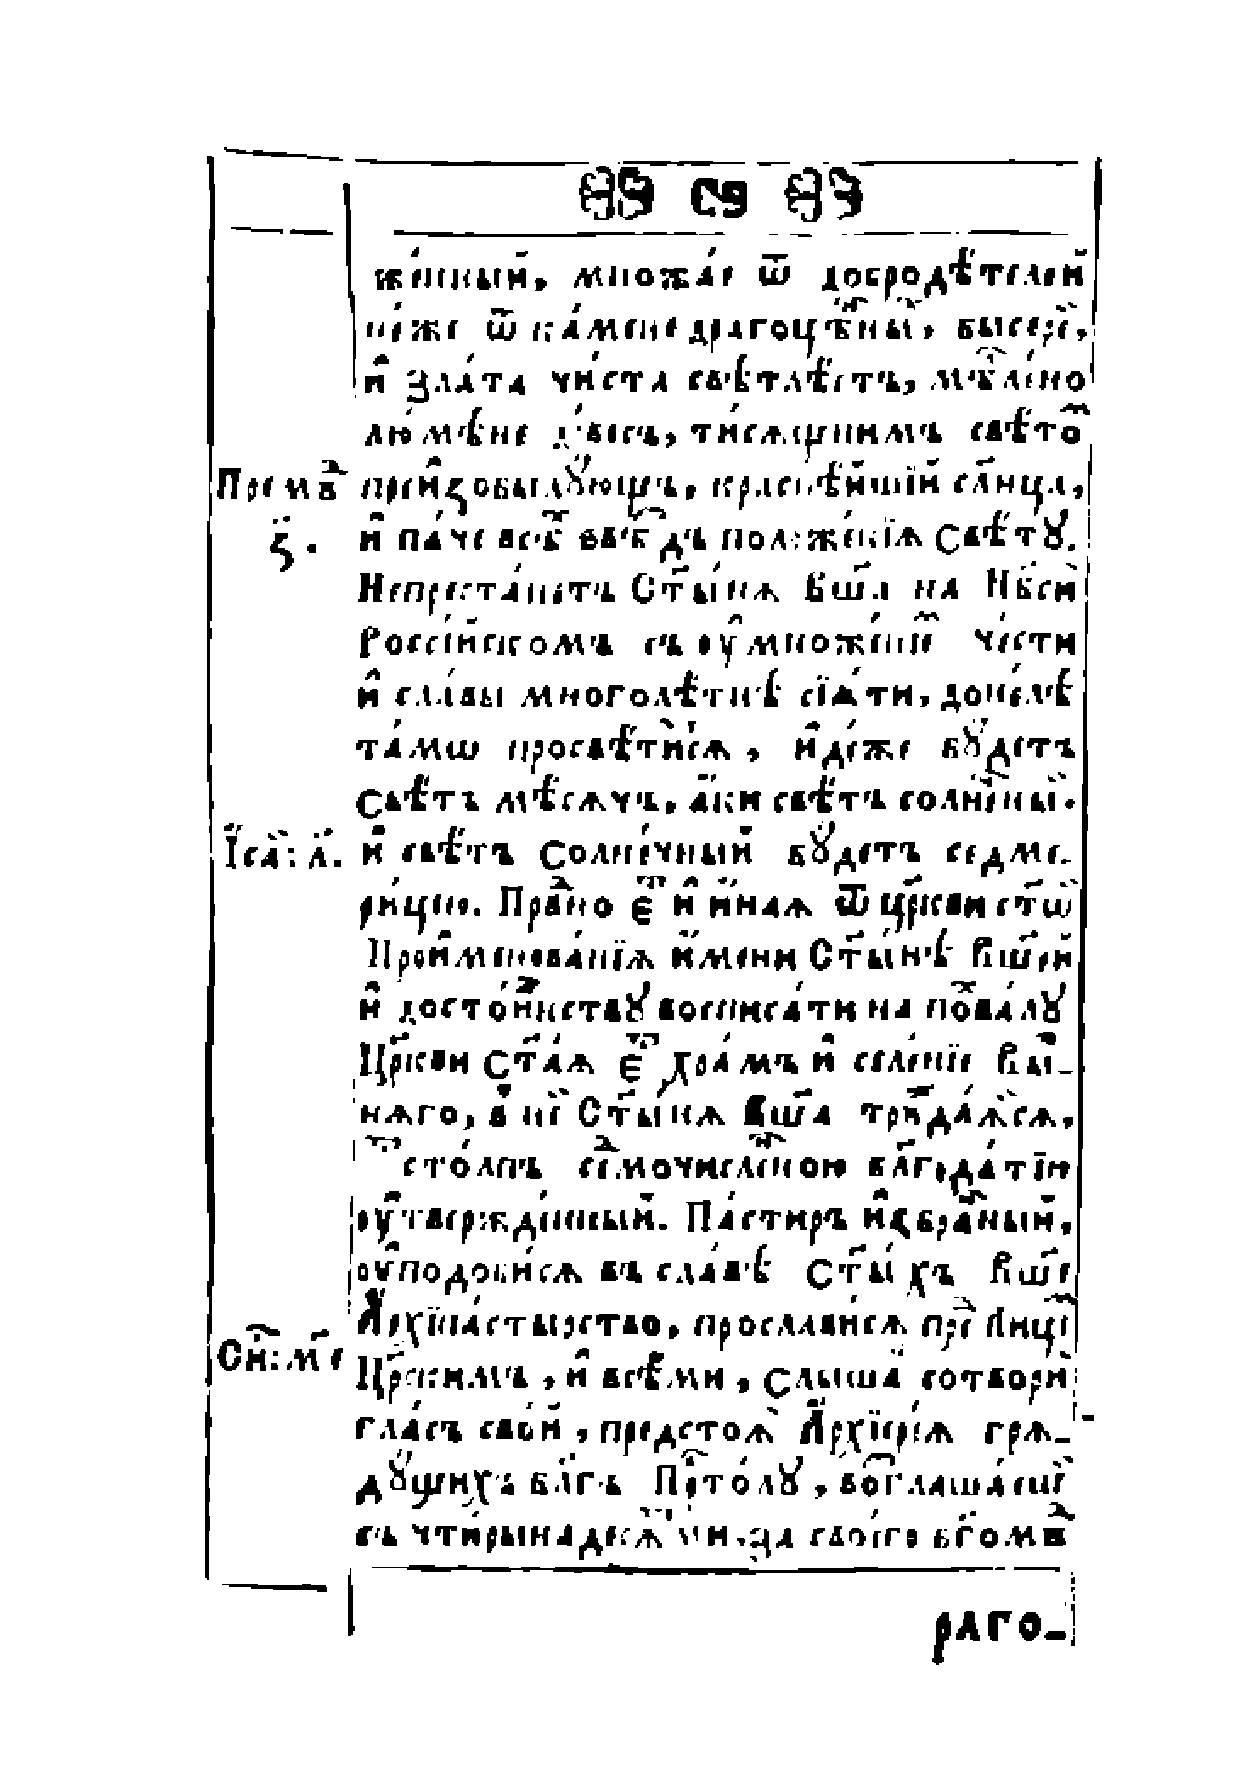 же́нный, множа́е ѿ добродѣ́телей
не́же ѿ ка́мене драгоцѣ́нны, бисе́ре,
и҆ зла́та чи́ста свѣтлѣ́етъ,
лю мѣ́не тисѧщнимъ свѣ́то
Премⷣ преи҆зобилꙋ́ющъ, краснѣ́йшїй сл҃нца,
ѕ҃. и҆ па́че всѣ̑х ѕвѣ̑здъ положе́нїѧ Свѣ́тꙋ.
Непреста́нетъ Ст҃ы́нѧ Вш҃а на Нб҃си
Россі́йскомъ съ оу҆множе́нїе че́сти
и҆ сла́вы многолѣ́тнѣ сїѧ́ти, доне́лѣ
та́мѡ просвѣти́сѧ, и҆дѣ́же бꙋ́детъ
Свѣ́тъ мѣ́сѧчъ, а҆́ки свѣ́тъ солнечный.
І҆саⷣ: л҃. и҆ свѣ́тъ Солне́чный бꙋ́детъ седме-
ри́цею. Пра́вⷣно є҆́стъ и҆ и҆́наѧ ѿ цр҃кви ст҃ѡй
Прои҆менова́нїѧ и҆́мени Ст҃ы́нѣ Вш҃ей
и҆ досто́и҆нствꙋ восписа́ти на похва́лꙋ
Цр҃кви Ст҃а́ѧ є҆́стъ хра́мъ и҆ селе́нїе Вы́ш-
нѧго, в не́й Ст҃ы́нѧ Вш҃а трꙋжда́ѧсѧ,
сто́лпъ се́дмочисленною блг҃ода́тїю
оу҆твержде́нный. Па́стиръ и҆збра́нный,
оу҆подоби́сѧ въ сла́вѣ Ст҃ы́хъ Вш҃е
А҆рхїпа́стырство, просла́висѧ пре Лице
Сиⷬ҇: м҃е Цр҃скимъ, и҆ всѣ́ми, слы́ша сотвори
гла́съ сво́й, предстоѧ̀ А҆рхїере́ѧ грѧ-
дꙋ́щихъ бл҃гъ Пр҇то́лꙋ, возглаша́еши
съ чти́рынадесѧ́т ми, за своего бг҃омⷣ
раго-